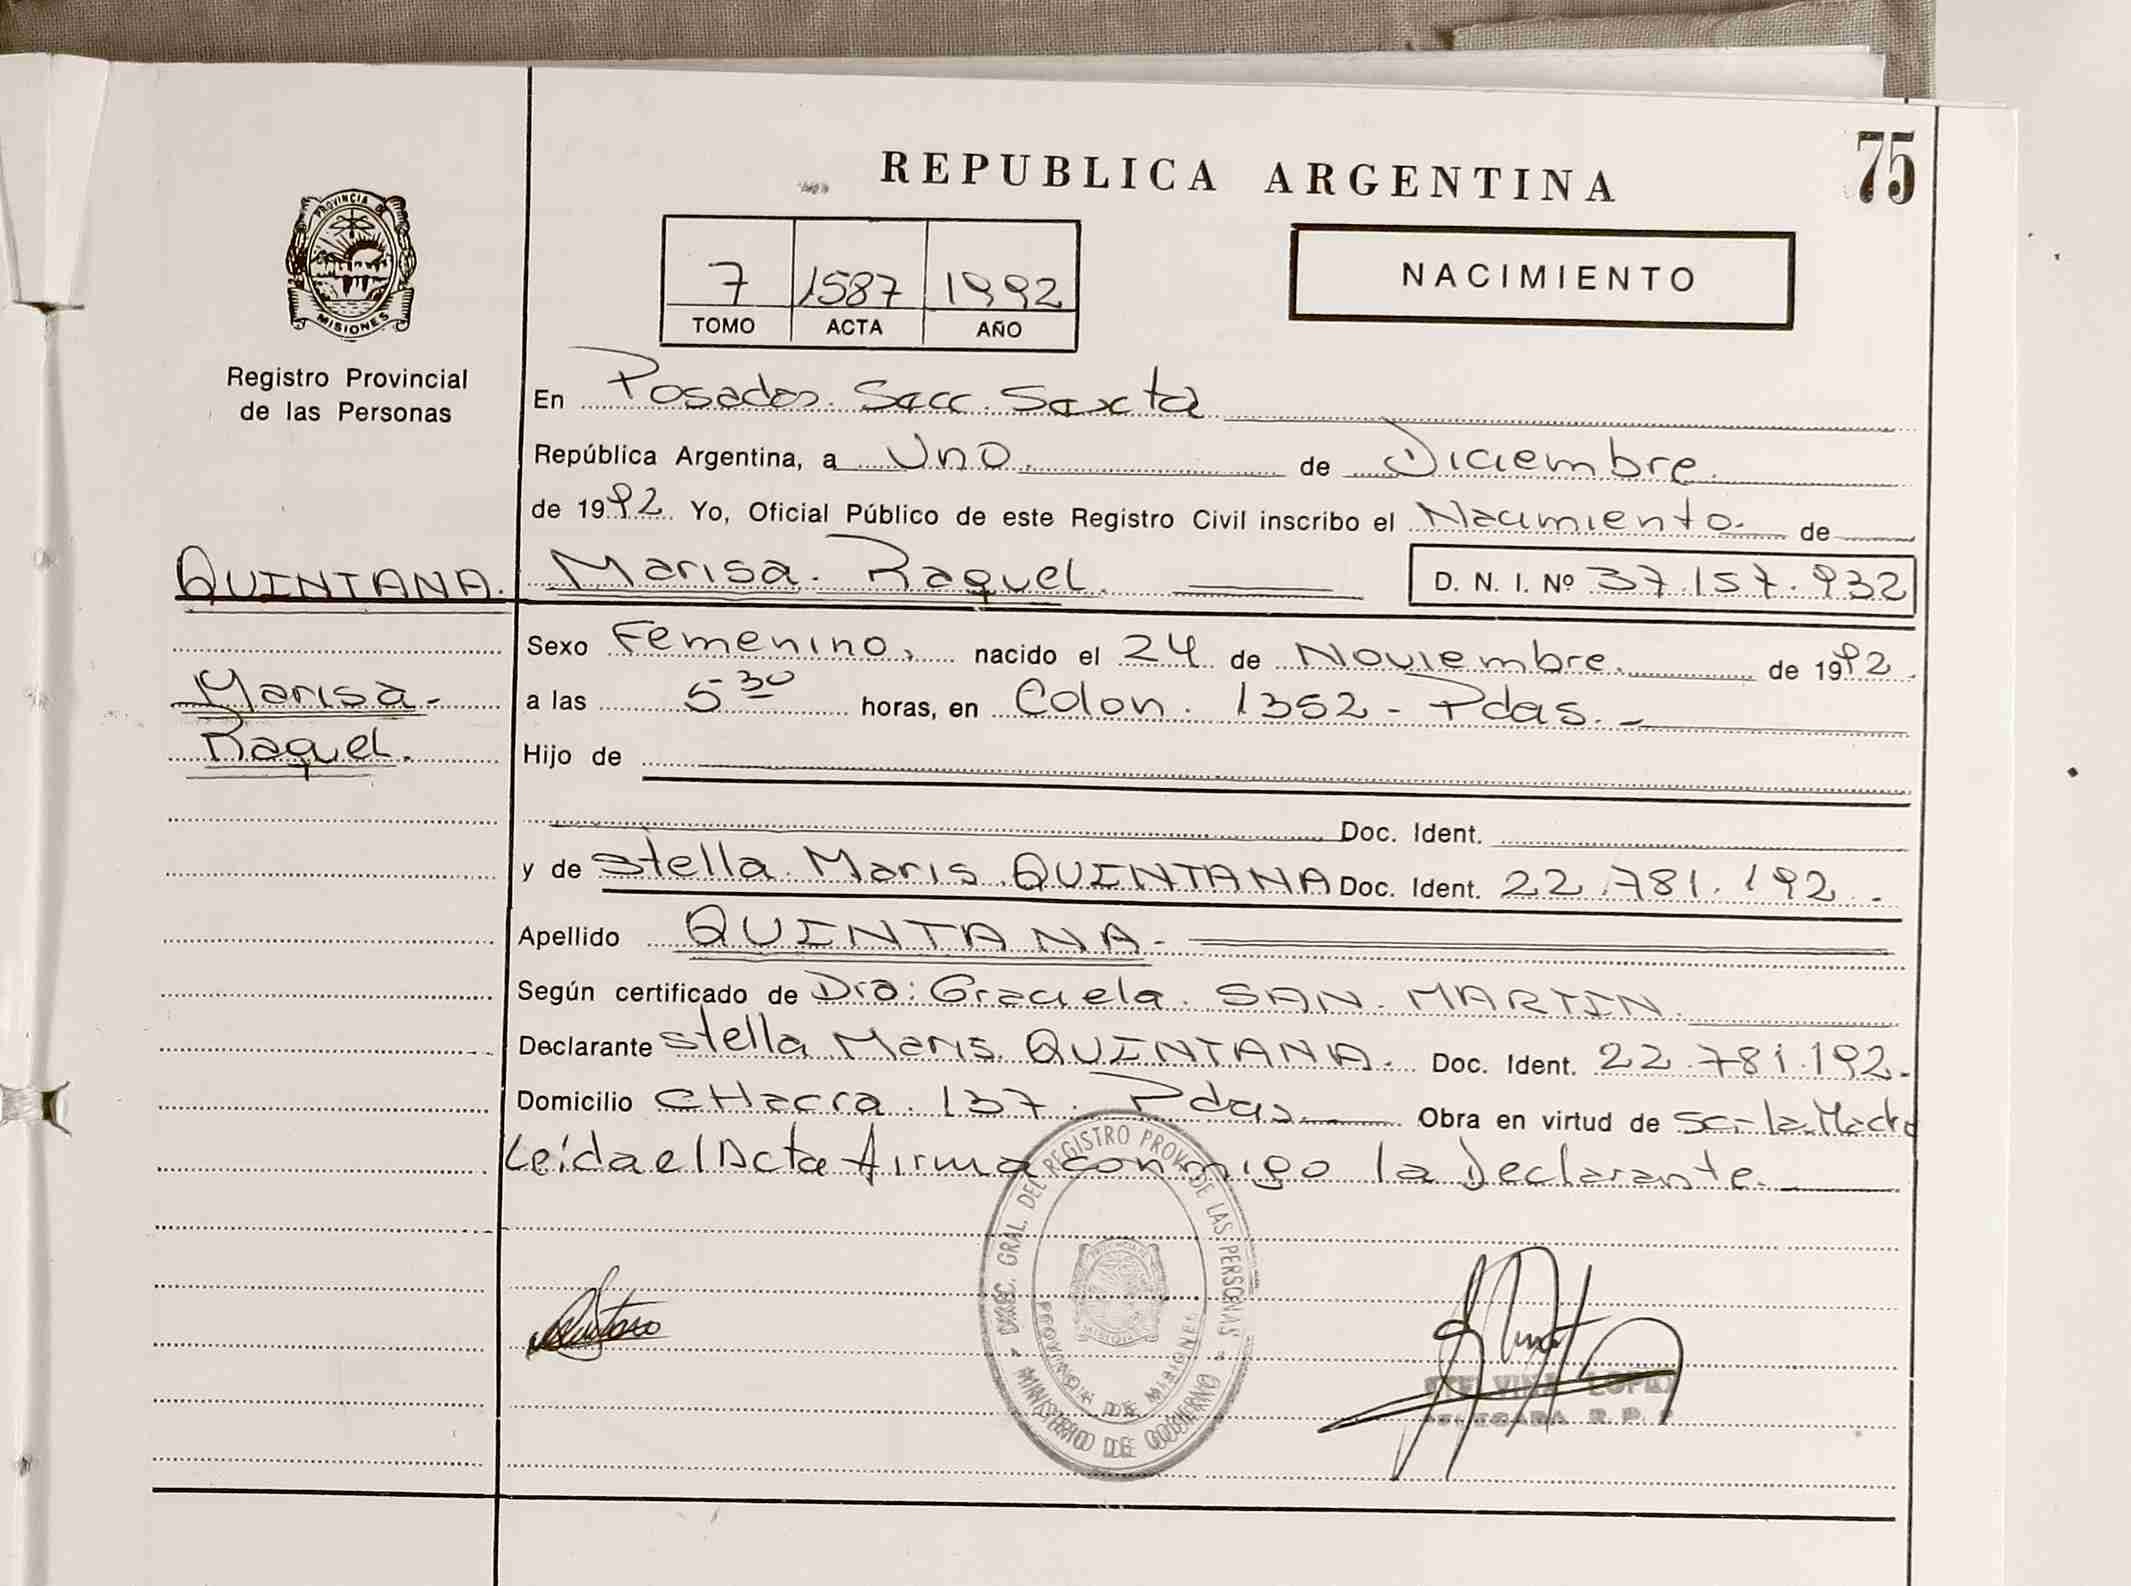 75
REPUBLICA ARGENTINA
PROVINCIA DE
MISIONES
Registro Provincial
de las Personas
7 1587 1992
TOMO ACTA AÑO
NACIMIENTO
En Posadas. Secc. Sexta
República Argentina, a Uno. de Diciembre.
de 1992 Yo, Oficial Público de este Registro Civil inscribo el Nacimiento. de
QUINTANA. Marisa. Raquel. D. N. I. Nº 37.157.932
Sexo Femenino, nacido el 24 de Noviembre. de 1992
Marisa.
a las 5 30 horas, en Colon. 1352 - Pdas.
Raquel.
Hijo de
Doc. Ident.
y de Stella Maris QUINTANA Doc. Ident. 22.781.192.
Apellido QUINTANA.
Según certificado de Dra: Graciela. SAN. MARTIN.
Declarante Stella Maris QUINTANA. Doc. Ident. 22.781.192.
Domicilio CHacra. 137. Pdas. Obra en virtud de Ser la Madre
Leída el Acta firma conmigo la Declarante.
DIREC. GRAL. DEL REGISTRO PROV. DE LAS PERSONAS
MINISTERIO DE GOBIERNO
PROVINCIA DE MISIONES
LOPEZ